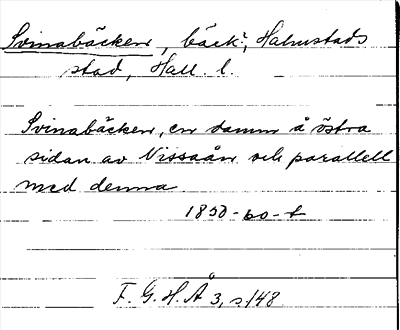 Svinabäcken, bäck?, Halmstads
stad, Hall. l.
Svinabäcken, en damm å östra
sidan av Nissaån och parallell
med denna
1850-
F. G. H. Å 3, s. 148